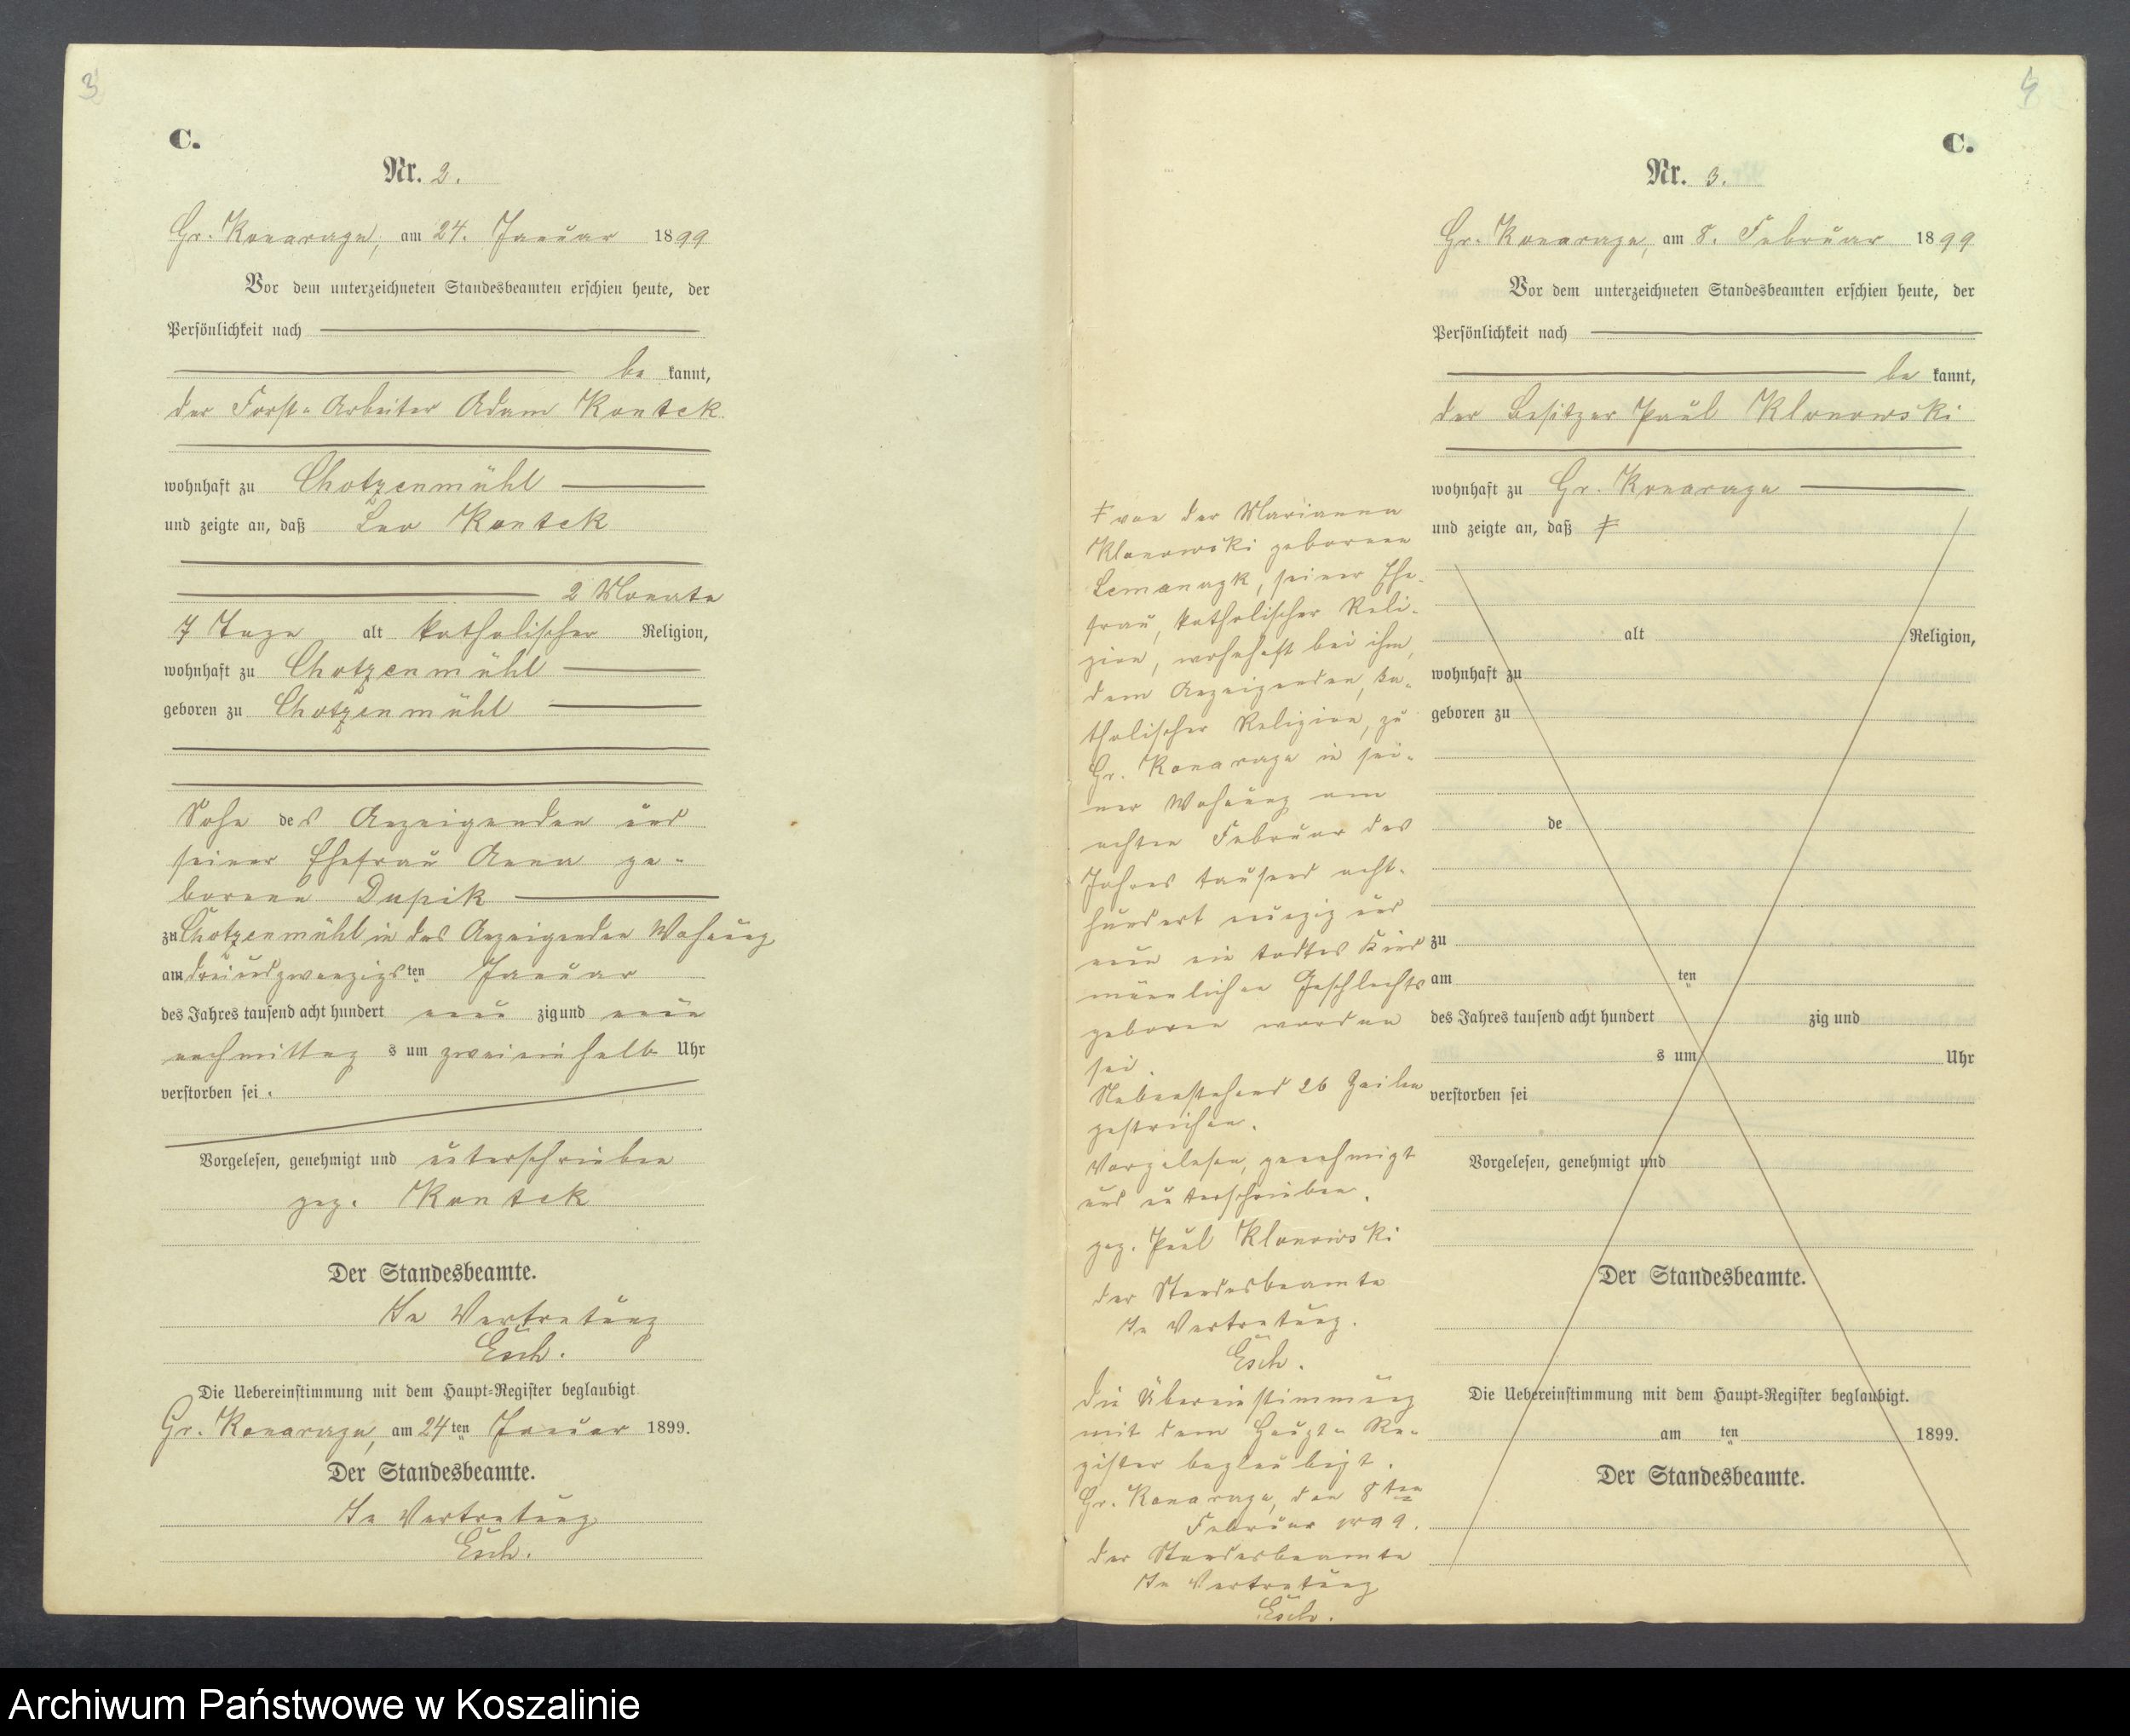 3
C.
Nr. 2.
Gr. Konarzyn, am 24. Januar 1899
Vor dem unterzeichneten Standesbeamten erschien heute, der
Persönlichkeit nach
be kannt,
der Forst-Arbeiter Adam Kontek
wohnhaft zu Chotzenmühl
und zeigte an, daß Leo Kontek
2 Monate
7 Tage alt katholischer Religion,
wohnhaft zu Chotzenmühl
geboren zu Chotzenmühl
Sohn des Anzeigenden und
seiner Ehefrau Anna ge-
borene Dupik
zu Chotzenmühl in des Anzeigenden Wohnung
am dreiundzwanzigsten Januar
des Jahres tausend acht hundert neun zig und neun
nachmittag s um zweieinhalb Uhr
verstorben sei.
Vorgelesen, genehmigt und unterschrieben
gez. Kontek
Der Standesbeamte.
In Vertretung
Esch.
Die Uebereinstimmung mit dem Haupt-Register beglaubigt
Gr. Konarzyn, am 24ten Januar 1899.
Der Standesbeamte.
In Vertretung
Esch.
4
C.
Nr. 3.
Gr. Konarzyn, am 8. Februar 1899
Vor dem unterzeichneten Standesbeamten erschien heute, der
Persönlichkeit nach
be kannt,
der Besitzer Paul Klonowski
wohnhaft zu Gr. Konarzyn
und zeigte an, daß
alt Religion,
wohnhaft zu
geboren zu
de
zu
am ten
des Jahres tausend acht hundert zig und
s um Uhr
verstorben sei
Vorgelesen, genehmigt und
Der Standesbeamte.
Die Uebereinstimmung mit dem Haupt-Register beglaubigt.
am ten 1899.
Der Standesbeamte.
von der Marianna
Klonowski geborenen
seiner Ehe-
frau, katholischer Reli-
gion, wohnhaft bei ihm,
dem Anzeigenden, ka-
tholischer Religion, zu
Gr. Konarzyn in sei-
ner Wohnung am
achten Februar des
Jahres tausend acht-
hundert neunzig und
neun ein todtes Kind
männlichen Geschlechts
geboren worden
sei.
Nebenstehend 26 Zeilen
gestrichen.
Vorgelesen, genehmigt
und unterschrieben.
gez. Paul Klonowski
der Standesbeamte
In Vertretung.
Esch.
die Übereinstimmung
mit dem Haupt-Re-
gister beglaubigt.
Gr. Konarzyn, den 8ten
Februar 1899.
der Standesbeamte
In Vertretung
Esch.
Archiwum Państwowe w Koszalinie